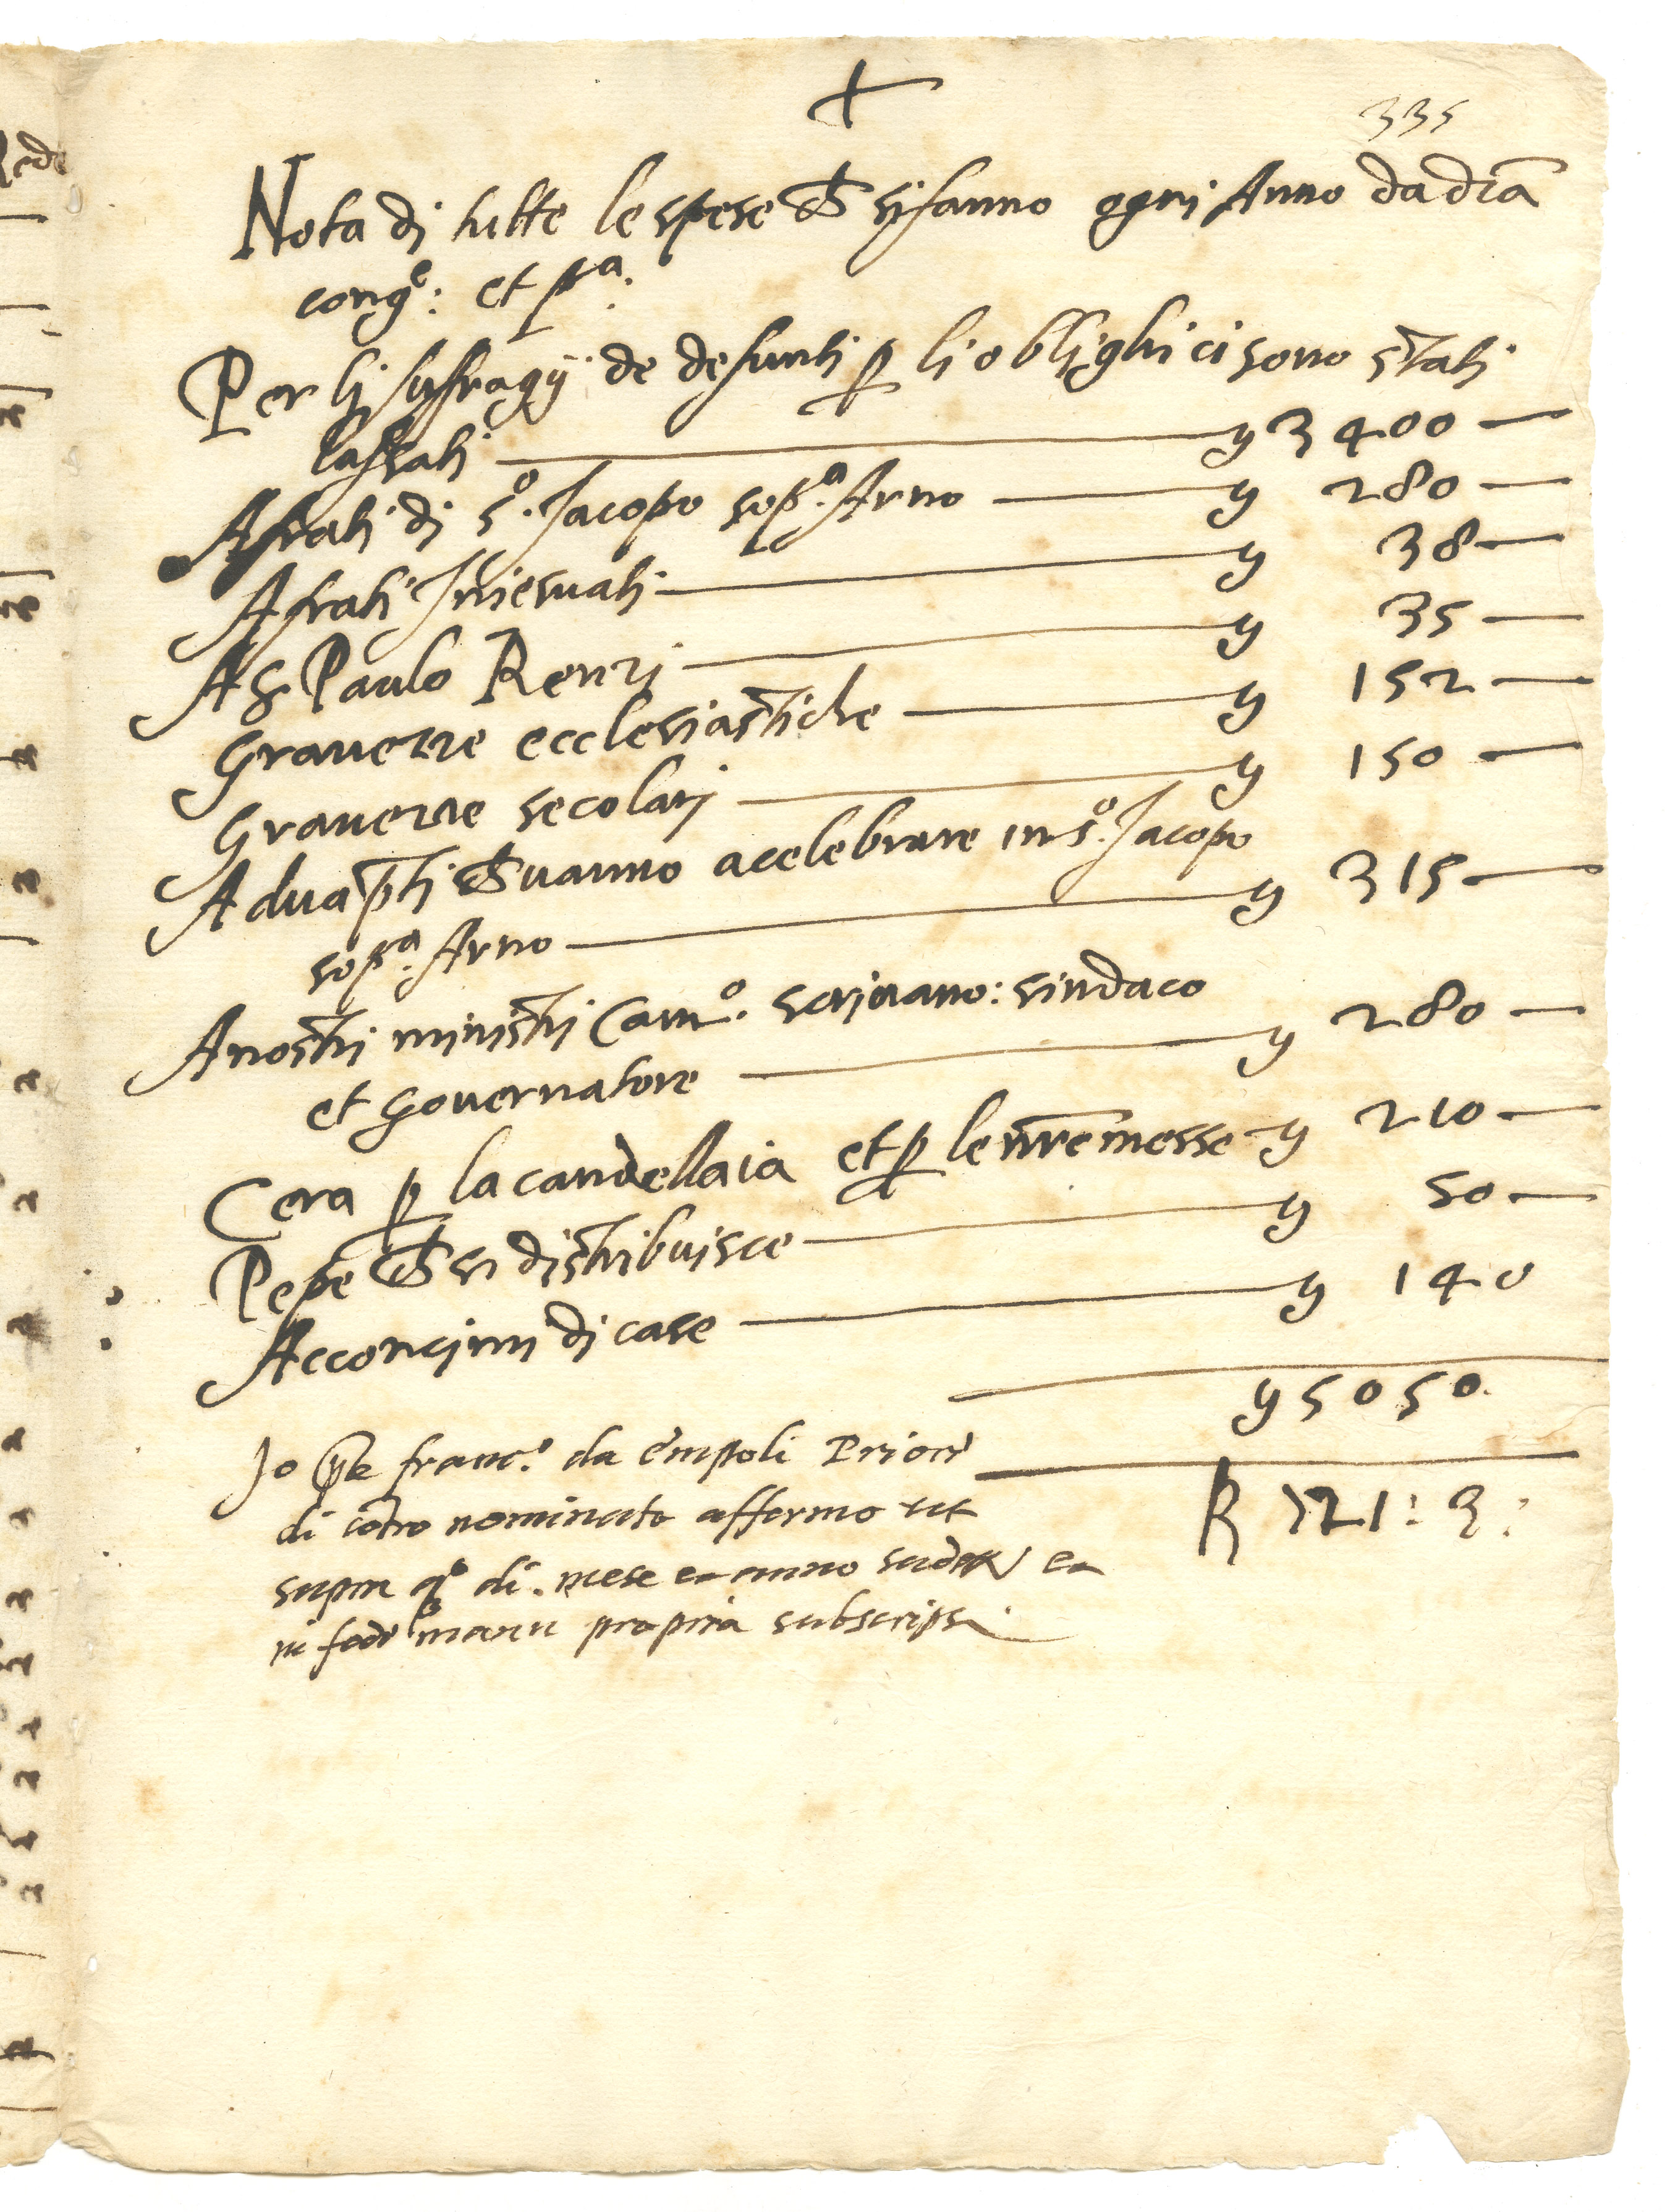 335
Nota di tutte le spese ch si fanno ogni Anno da dta
congne: et pa:
Per li sufragij de defunti p li oblighi ci sono stati
lassati — 3400 —
A frati di so. Jacopo sopa. Arno — 280 —
A frati Iniesuati — 38 —
A S. Paulo Renzi — 35 —
Gravezze ecclesiastiche — 152 —
Gravezze secolari — 150 —
A dua pti ch vanno a celebrare in so. Jacopo
sopa. Arno — 315 —
A nostri ministri Camo. scrivano: sindaco
et Governatore — 280 —
Cera p la candellaia et p le nre messe 210 —
Pepe ch si distribuisce — 50 —
Acconcimi di case — 140
5050.
Io franco. da Empoli Priore
di cotro nominato affermo ut
supra di. mese et anno et
in fede manu propria subscripsi.
R 721: 3: